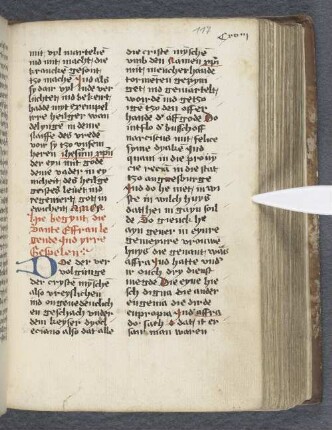 117
Cxviii
mit vyl martelie
vnd mit macht die
krancke gesont
tzo machē Jnd als
sy dair vyl lude ver
luchtet ind bekert
hadde myt exempel
yrre heilger wan
delynge in deme
slaiffe des vrede
voir sy tzo vnsem
heren ihesum xpm
der eyn mit gode
deme vader in ey
nicheit des heilge
geistes levet ind
regeneert got in
ewicheit Amen
Hye begynt die
sante Effran le
gende Ind yrre
Geselen
DOe der ver
volgunge
der cryste mysche
also vreyslichen
ind ongenedenclich
en geschach vnder
dem keyser dyocl
eciano also dat alle
die criste mysche
vmb den namen xpm
mit mencherhande
tormeten gepyn
get ind gemartelt
worde ind getzo
gē tzo den offer
hande d' affgode Do
intflo d' busschoff
narcissus mit felice
syme dyake Jnd
quam in die provy
cie recia in die stat
tzo augwesburge
Jnd do he niet in wi
ste in wilch huys
dat her in gayn soil
de Do gienck he
ayn gener in eynre
gemeynre vrouwē
huys die genant was
affra Jnd hatte vnd'
ir ouch dry dienst
megde Die eyne hie
sch digna die ander
eugenia die dirde
euprapia Jnd affra
do sach d dat it er
sam man waren